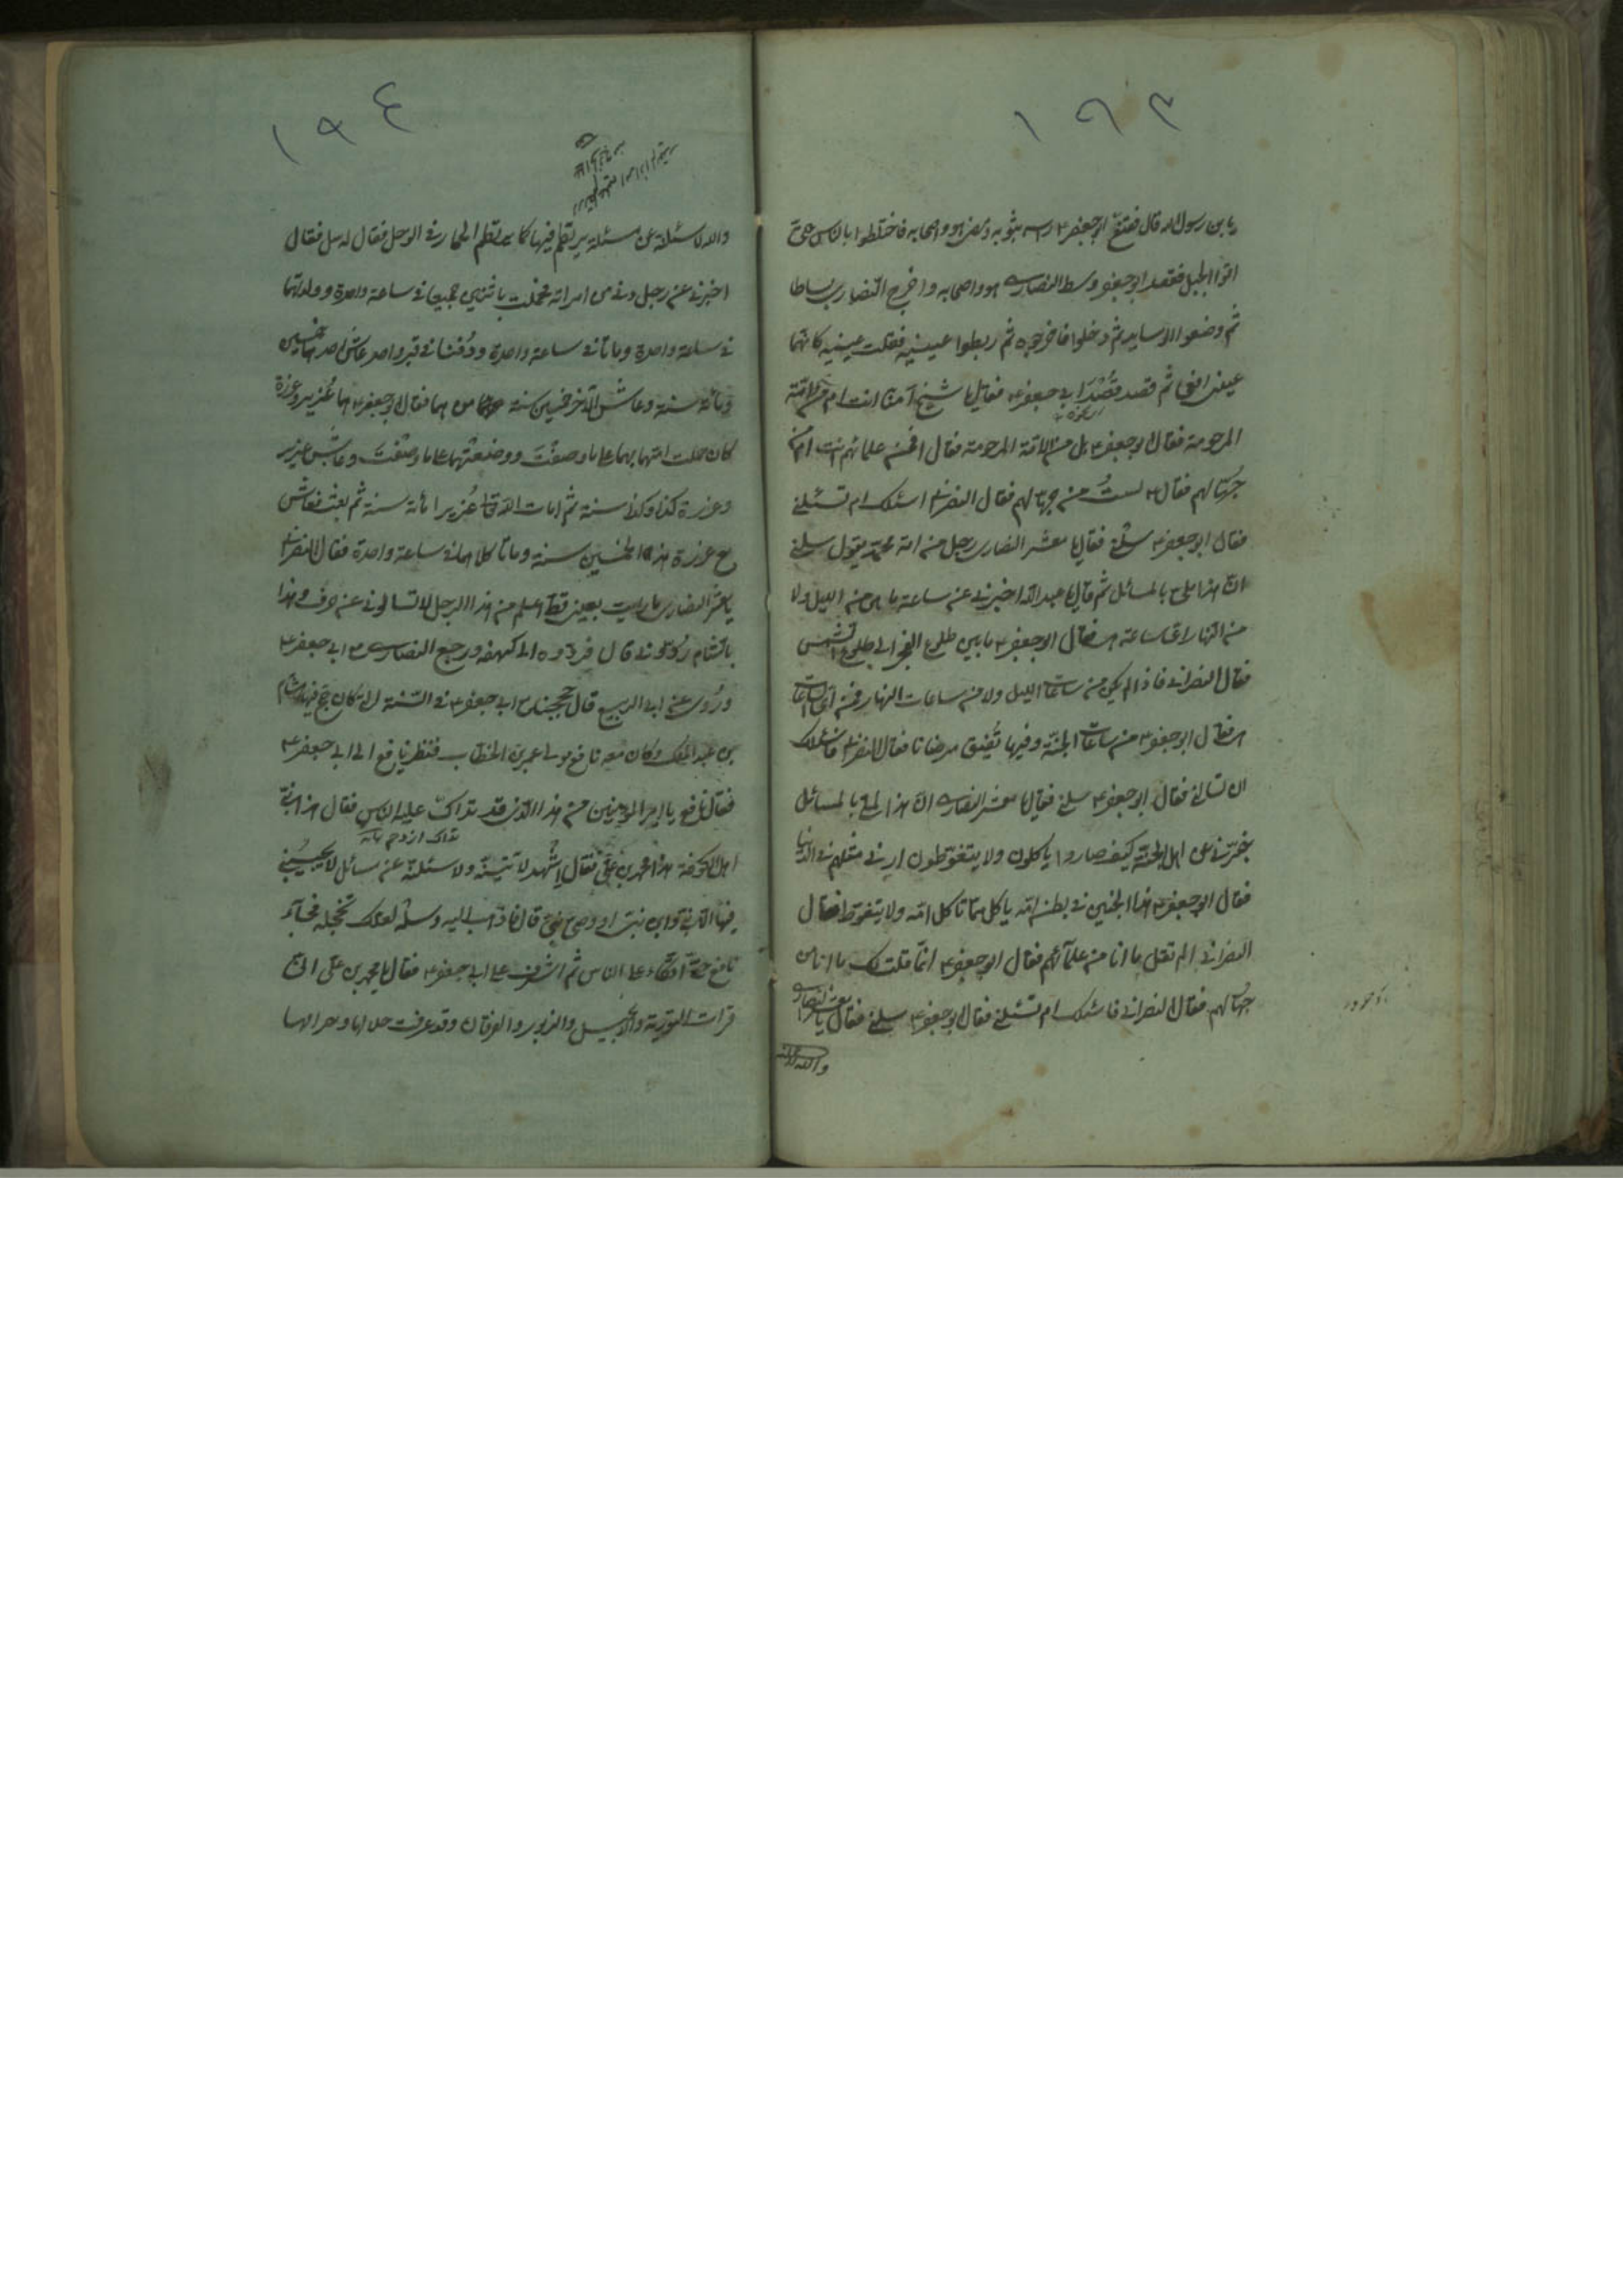 ١٩٣
يا بن رسول الله قال فقنع ابو جعفر ع راسه بثوبه ومضى هو واصحابه فاختلطوا بالناس حتى
اتوا الجبل فقعد ابو جعفر وسط النصارى هو واصحابه واخرج النصارى بساطا
ثم وضعوا الوسايد ثم دخلوا فاخرجوه ثم ربطوا عينيه فقلب عينيه كانهما
عينا افعى ثم قصد قصد ابى جعفر ع فقال يا شيخ امنّا انت ام من الامّة
المرحومة فقال ابو جعفر ع بل من الامّة المرحومة فقال افمن علمائهم انت ام من
جهّالهم فقال ع لستُ من جهّالهم فقال النصرانى اسئلك ام تسئلنى
فقال ابو جعفر ع سلنى فقال يا معشر النصارى رجل من امة محمّد يقول سلنى
انّ هذا ملىء بالمسائل ثم قال يا عبد الله اخبرنى عن ساعة ما هى من الليل ولا
من النهار اىّ ساعة هى فقال ابو جعفر ع ما بين طلوع الفجر الى طلوع الشمس
فقال النصرانى فاذا لم يكن من ساعات الليل ولا من ساعات النهار فمن اىّ الساعات
هى فقال ابو جعفر ع من ساعات الجنّة وفيها تُفيق مرضانا فقال النصرانى فاسئلك
ام تسئلنى فقال ابو جعفر ع سلنى فقال يا معشر النصارى انّ هذا لملىء بالمسائل
خبّرنى عن اهل الجنّة كيف صاروا ياكلون ولا يتغوّطون ارنى مثلهم فى الدنيا
فقال ابو جعفر ع هذا الجنين فى بطن امّه ياكل ممّا تاكل امّه ولا يتغوّط فقال
النصرانى الم تقل ما انا من علمآئهم فقال ابو جعفر ع انّما قلت لك ما انا من
جهّالهم فقال النصرانى فاسئلك ام تسئلنى فقال ابو جعفر ع سلنى فقال يا معشر النصارى
والله لاسئلنه
١٩٤
والله لاسئلنه عن مسئلة يرتطم فيها كما يرتطم الحمار فى الوحل فقال له سل فقال
اخبرنى عن رجل دنى من امراته فحملت باثنين جميعا فى ساعة واحدة وولدتهما
فى ساعة واحدة وماتا فى ساعة واحدة ودُفنا فى قبر واحد عاش احدهما خمسين
ومائة سنة وعاش الآخر خمسين سنة من هما فقال ابو جعفر ع هما عُزير وعزرة
كان حملت امّهما بهما على ما وصفتَ ووضعتهما على ما وصفتَ وعاش عزير
وعزرة كذا وكذا سنة ثم امات الله تعالى عُزيرا مائة سنة ثم بعث فعاش
مع عزرة هذه الخمسين سنة وماتا كلاهما فى ساعة واحدة فقال النصرانى
يا معشر النصارى ما رايت بعينى قطّ اعلم من هذا الرجل لا تسالونى عن حرف وهذا
بالشام رُدّونى قال فردّوه الى كهفه ورجع النصارى مع ابى جعفر ع
ورُوى عن ابى الربيع قال حججنا مع ابى جعفر ع فى السّنة التى كان حجّ فيها هشام
بن عبد الملك وكان معه نافع مولى عمر بن الخطاب فنظر نافع الى ابى جعفر ع
فقال نافع يا امير المؤمنين من هذا الّذى قد تداكّ عليه الناس فقال هذا نبىّ
تداك ازدحم
اهل الكوفة هذا محمد بن علىّ فقال اشهد لآتينّه ولاسئلنّه عن مسائل لا يجيبنى
فيها الّا نبىّ او ابن نبىّ او وصىّ نبىّ قال فاذهب اليه وسله لعلك تخجله فجآء
نافع حتى اتّكاء على الناس ثم اشرف على ابى جعفر ع فقال يا محمد بن على انى
قرات التورية والانجيل والزبور والفرقان وقد عرفت حلالها وحرامها